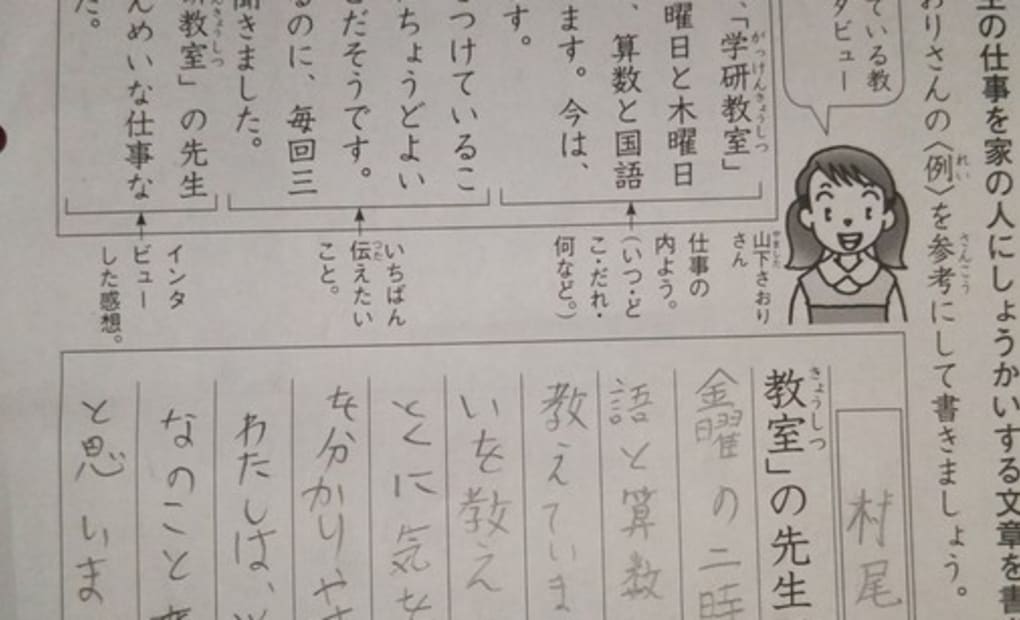 の仕事を家の人にしょうかいする文章を書
おりさんの〈例〉を参考にして書きましょう。
ている教
タビュー
、「学研教室」
曜日と木曜日
、算数と国語
ます。今は、
す。
つけているこ
ちょうどよい
だそうです。
るのに、毎回三
聞きました。
教室」の先生
んめいな仕事な
た。
山下さおり
さん
仕事の
内よう。
(いつ・ど
こ・だれ・
何など。)
いちばん
伝えたい
こと。
インタ
ビュー
した感想。
村尾
教室」の先生
金曜の二時
語と算数
教えていま
いを教え
とくに気を
を分かりや
わたしは、
なのこと
と思いま